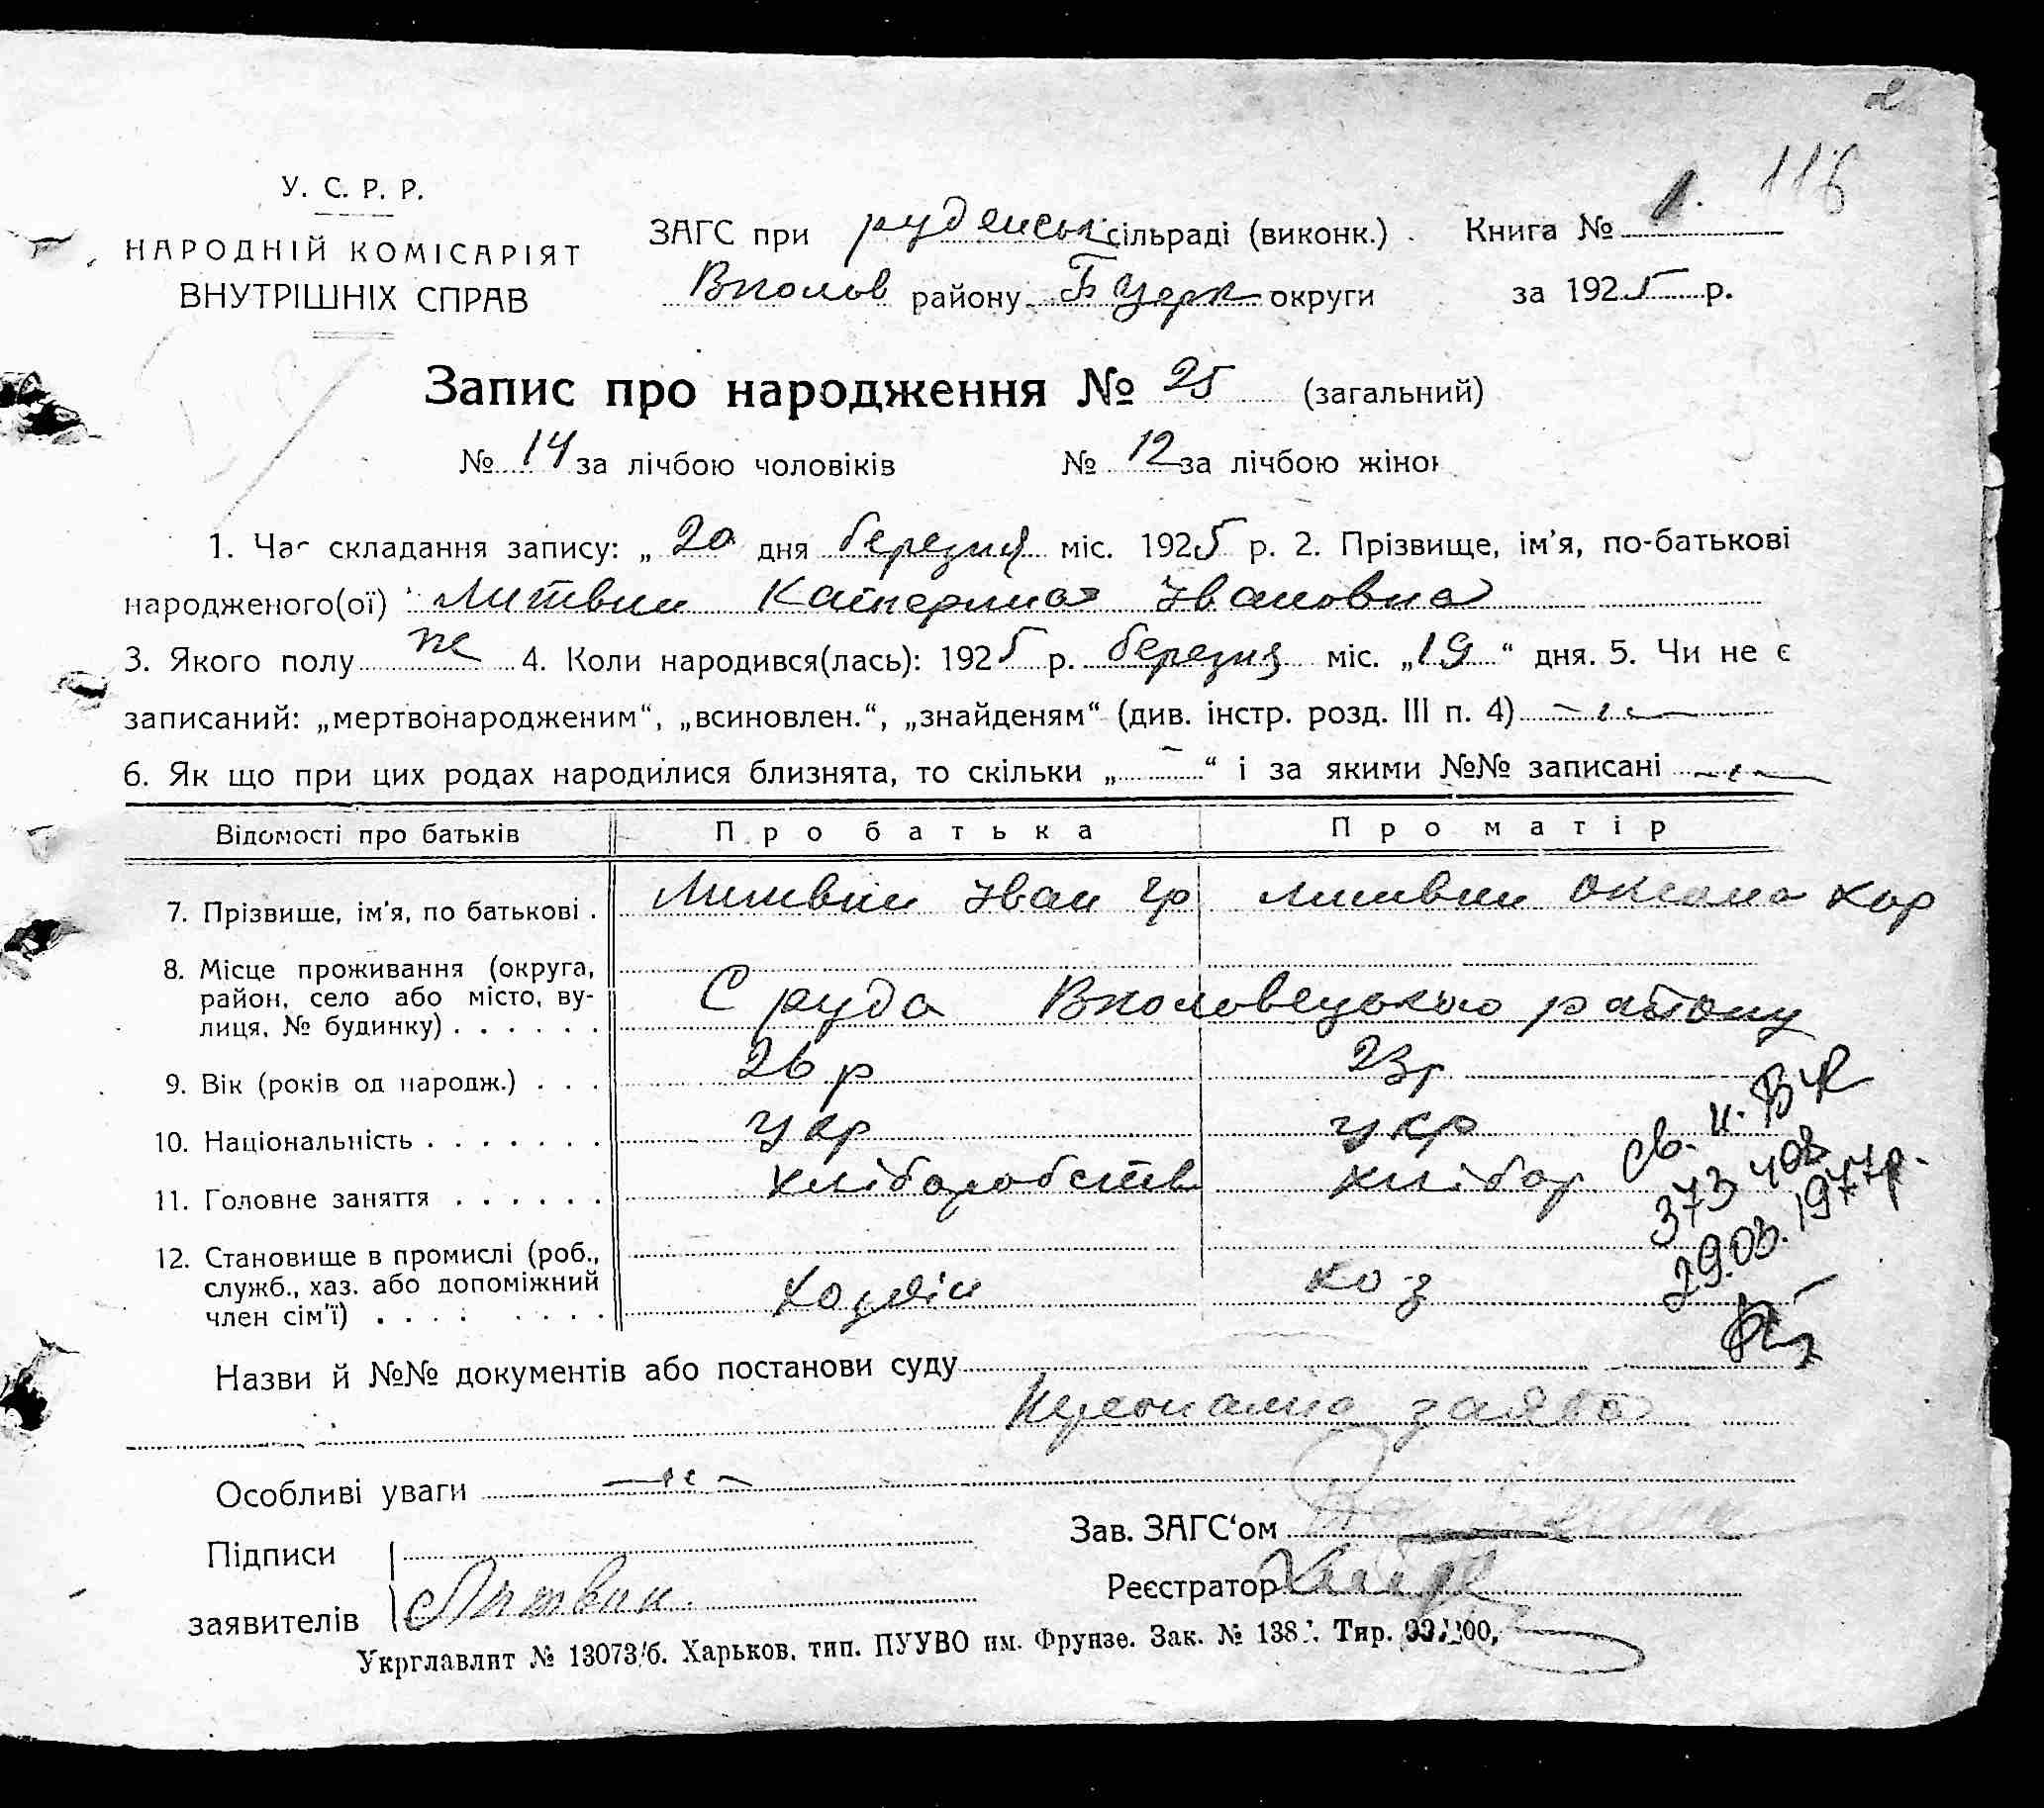 118
У. С. Р. Р.
НАРОДНІЙ КОМІСАРІЯТ
ВНУТРІШНІХ СПРАВ
ЗАГС при руденськ сільраді (виконк.) Книга № 1.
Вполов району Б Церк округи за 1925 р.
Запис про народження № 25 (загальний)
№ 14 за лічбою чоловіків № 12 за лічбою жінок
1. Час складання запису: „ 20 дня березня міс. 1925 р. 2. Прізвище, ім’я, по-батькові
народженого(ої) Литвин Катерина Івановна
3. Якого полу ж 4. Коли народився(лась): 1925 р. березня міс. „19“ дня. 5. Чи не є
записаний: „мертвонародженим“, „всиновлен.“, „знайденям“ (див. інстр. розд. III п. 4)
6. Як що при цих родах народилися близнята, то скільки „ — “ і за якими №№ записані
Відомості про батьків Про батька Про матір
7. Прізвище, ім’я, по батькові . Литвин Іван Гр Литвин Оксана Кор
8. Місце проживання (округа,
район, село або місто, ву-
лиця, № будинку) . . . . . . С руда Вполовецького району
9. Вік (років од народж.) . . . 26 р 23 р
10. Національність . . . . . . . укр укр
11. Головне заняття . . . . . . хліборобств хлібор
12. Становище в промислі (роб.,
служб., хаз. або допоміжний
член сім’ї) . . . . . . . . хозяін хоз
св. и. ВЧ
373402
29.03.1977р.
Назви й №№ документів або постанови суду
заява
Особливі уваги
Підписи
заявителів Литвин
Зав. ЗАГС‘ом
Реєстратор
Укрглавлит № 13073/б. Харьков, тип. ПУУВО им. Фрунзе. Зак. № 138 . Тир.